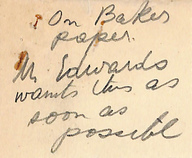 On Baker
paper.
Mr Edwards
wants this as
soon as
possible